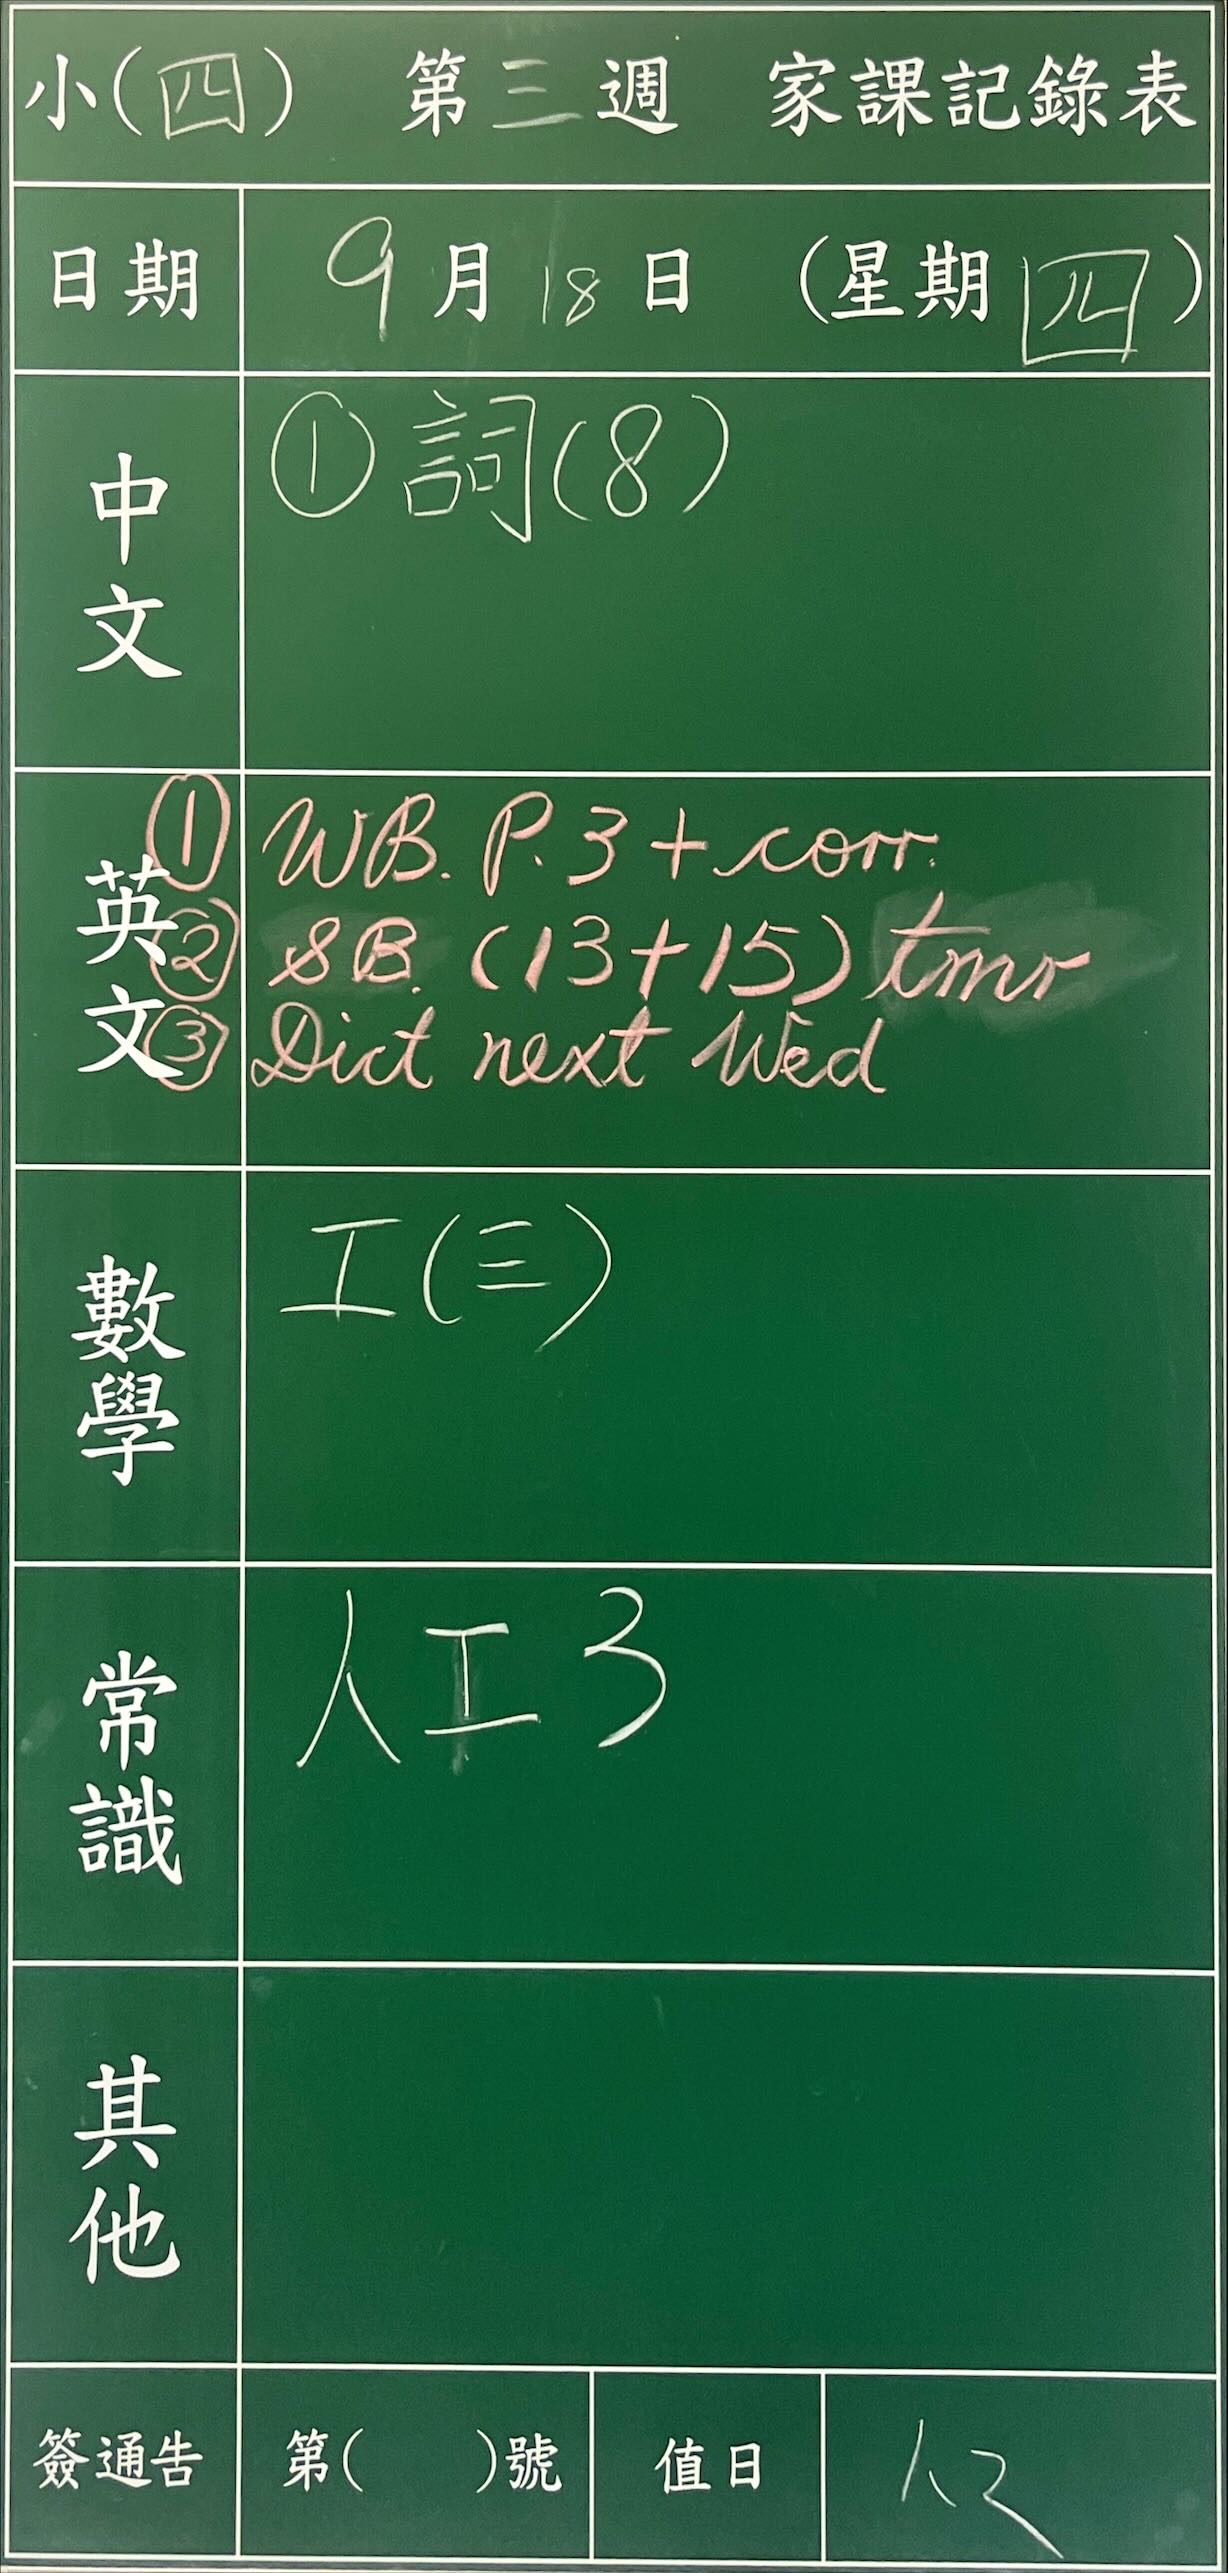 小(四) 第三週 家課記錄表
日期 9月18日 (星期四)
中文
①詞(8)
英文
① WB. P.3 + corr.
② SB. (13+15) tmr
③ Dict next Wed
數學
工(三)
常識
人工3
其他
簽通告 第( )號 值日